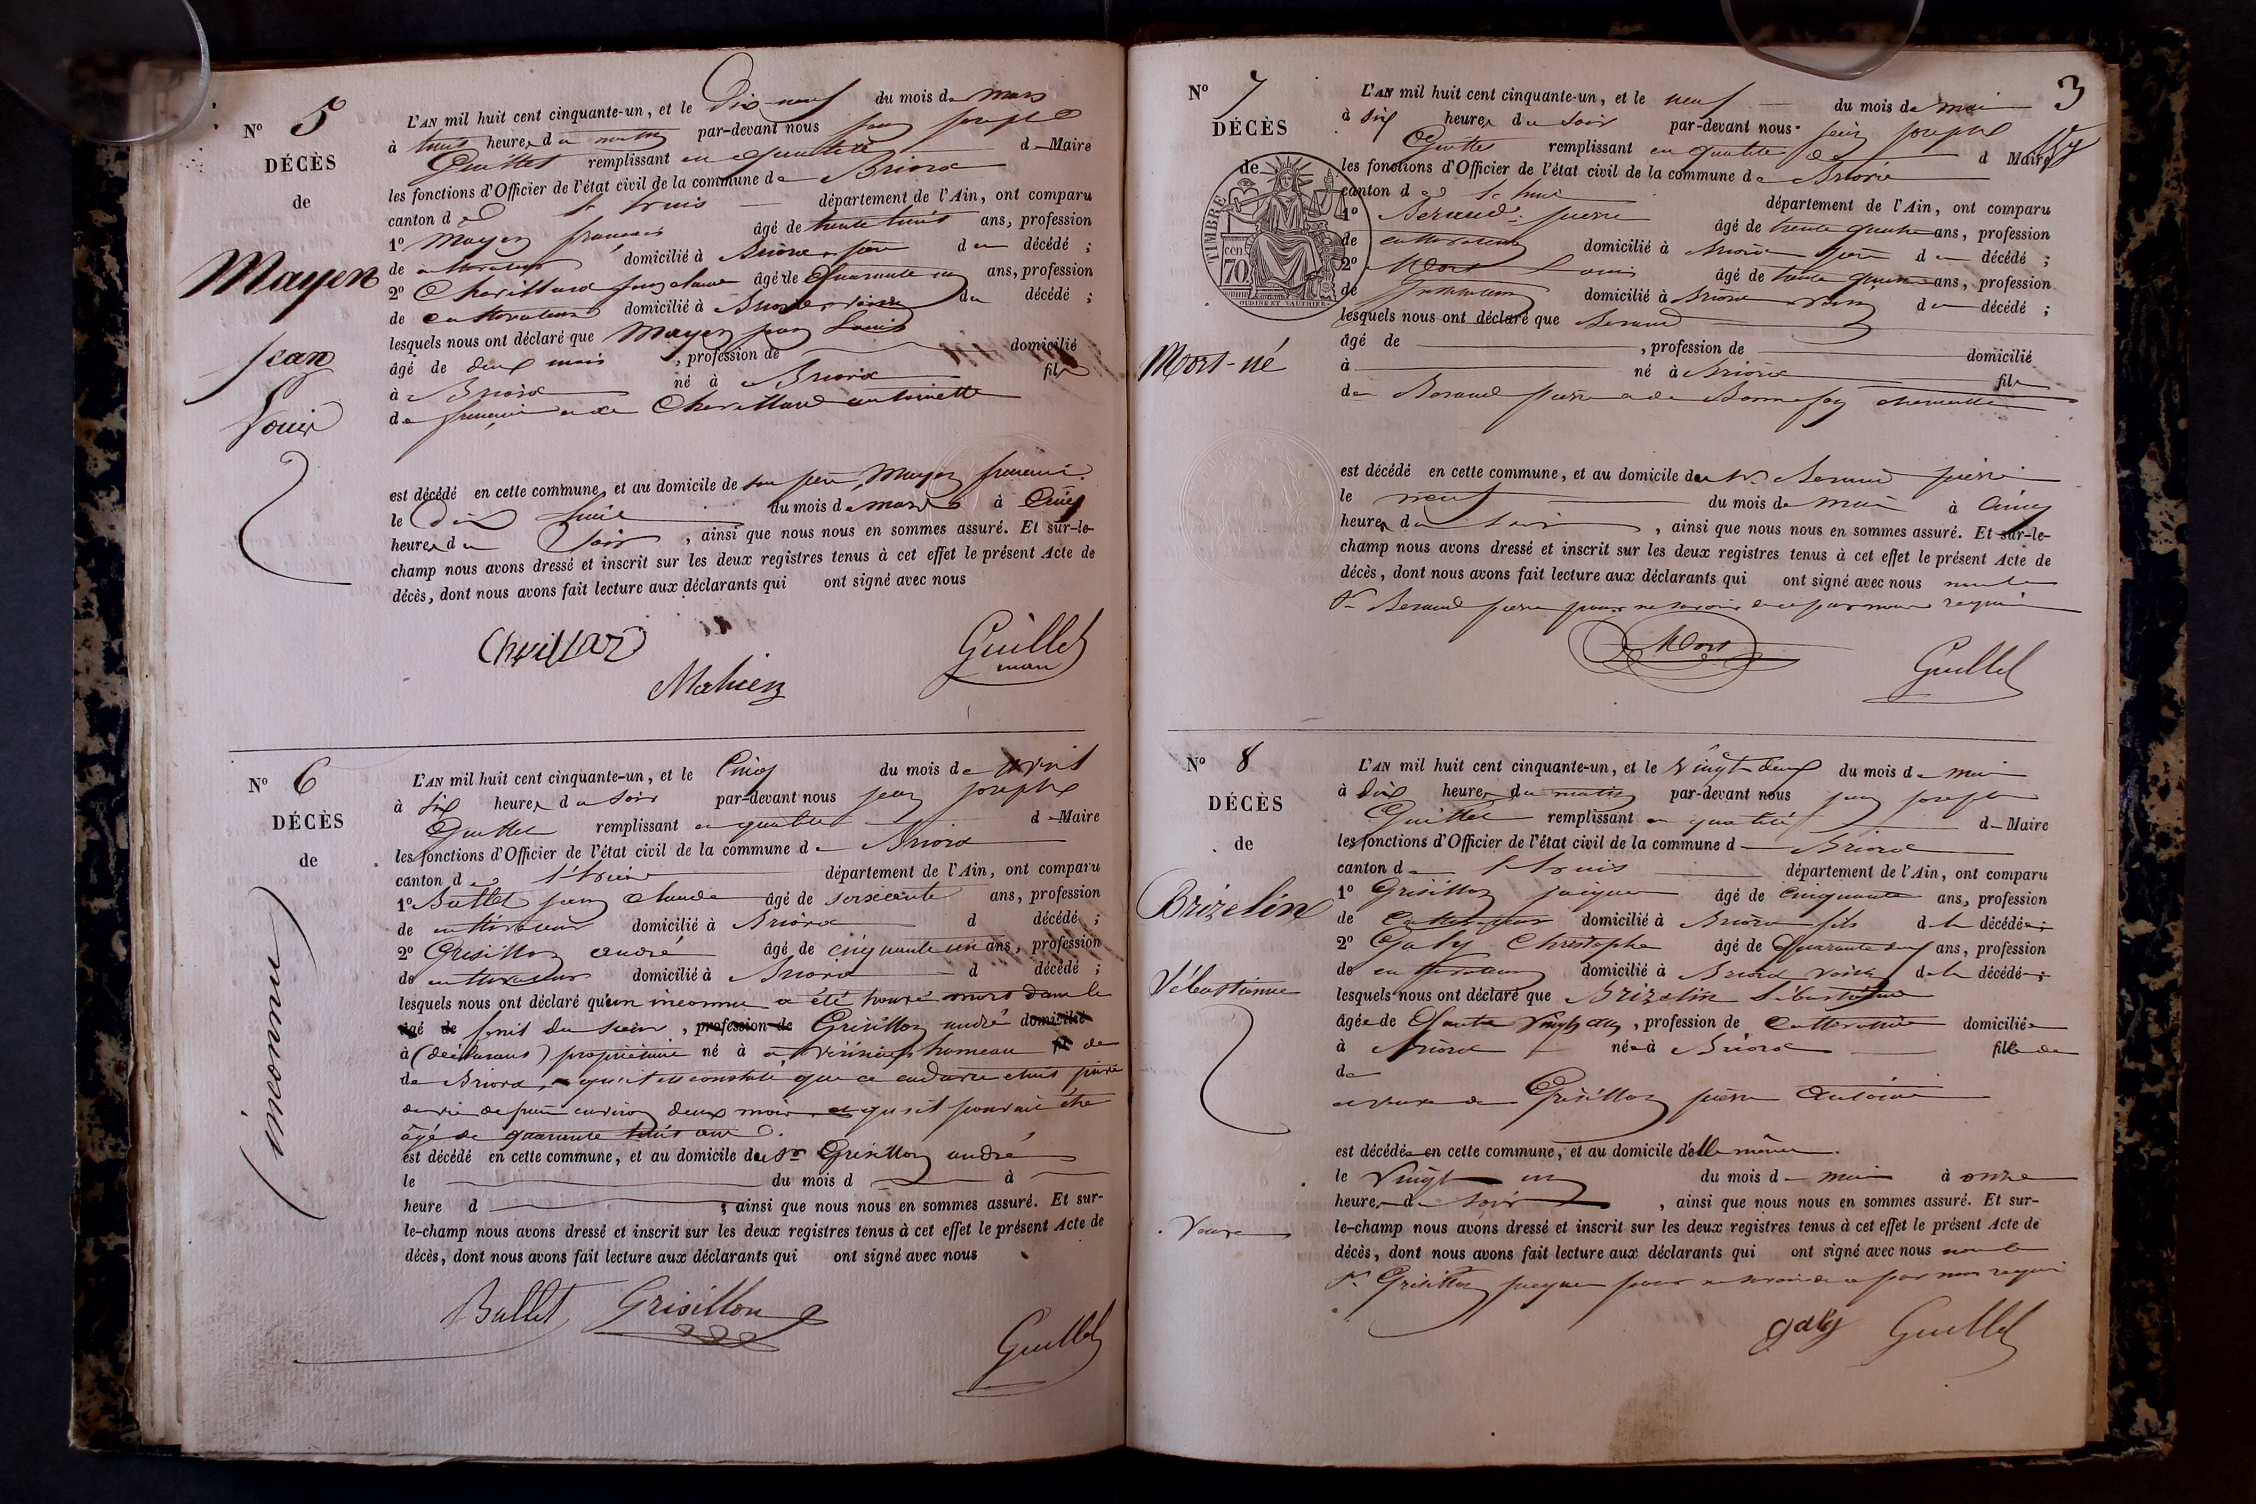 N° 5
DÉCÈS
de
Mayen
jean
Louis
L'AN mil huit cent cinquante-un, et le Dix-neuf du mois de mars
à heures du matin par-devant nous jean joseph
Guillet remplissant en qualité d Maire
les fonctions d'Officier de l'état civil de la commune de Briord
canton d département de l'Ain, ont comparu
1° Mayen françois âgé de trente trois ans, profession
de cultivateur domicilié à Briord père du décédé ;
2° Chevillard jean claude âgé de Quarante ans, profession
de cultivateur domicilié à Briord voisin du décédé ;
lesquels nous ont déclaré que Mayen jean Louis
âgé de deux mois , profession de domicilié
à Briord né à Briord fils
de françois et de Chevillard antoinette
est décédé en cette commune, et au domicile de son père Mayen françois
le Dix huit du mois de mars à Cinq
heures du Soir , ainsi que nous nous en sommes assuré. Et sur-le-
champ nous avons dressé et inscrit sur les deux registres tenus à cet effet le présent Acte de
décès, dont nous avons fait lecture aux déclarants qui ont signé avec nous
Guillet
maire
N° 6
DÉCÈS
de
(inconnu)
L'AN mil huit cent cinquante-un, et le Cinq du mois de avril
à six heures du soir par-devant nous jean joseph
Guillet remplissant en qualité d Maire
les fonctions d'Officier de l'état civil de la commune de Briord
canton d département de l'Ain, ont comparu
1° Ballet jean claude âgé de soixante ans, profession
de cultivateur domicilié à Briord d décédé ;
2° Grisillon andré âgé de cinquante un ans, profession
de cultivateur domicilié à Briord d décédé ;
lesquels nous ont déclaré qu'un inconnu a été trouvé mort dans le
âgé de fenil du sieur , profession de Grisillon andré domicilié
à (déclarant) propriétaire né à à vérisieu hameau fil de
de Briord, qu'il est constaté que ce cadavre était privé
de vie depuis environ deux mois et qu'il pouvait être
âgé de quarante trois ans.
est décédé en cette commune, et au domicile du Sr Grisillon andré
le du mois d à
heure d , ainsi que nous nous en sommes assuré. Et sur-
le-champ nous avons dressé et inscrit sur les deux registres tenus à cet effet le présent Acte de
décès, dont nous avons fait lecture aux déclarants qui ont signé avec nous
Ballet Grisillon
Guillet
3
N° 7
DÉCÈS
de
TIMBRE
70
OUDINÉ ET VAUTHIER
Mort-né
L'AN mil huit cent cinquante-un, et le neuf du mois de mai
à six heures du soir par-devant nous jean joseph
Guillet remplissant en qualité de d Maire
les fonctions d'Officier de l'état civil de la commune de Briord
canton d département de l'Ain, ont comparu
1° Beraud pierre âgé de trente quatre ans, profession
de cultivateur domicilié à Briord père du décédé ;
2° Mort Louis âgé de trente ans, profession
de domicilié à Briord voisin du décédé ;
lesquels nous ont déclaré que Beraud
âgé de , profession de domicilié
à né à Briord fils
de Beraud pierre et de Bonnefoy
est décédé en cette commune, et au domicile du Sr. Beraud pierre
le neuf du mois de mai à cinq
heures du soir , ainsi que nous nous en sommes assuré. Et sur-le-
champ nous avons dressé et inscrit sur les deux registres tenus à cet effet le présent Acte de
décès, dont nous avons fait lecture aux déclarants qui ont signé avec nous non le
Sr Beraud pierre pour ne savoir de ce par nous requis
Mort
Guillet
N° 8
DÉCÈS
de
Brizelin
Sébastienne
Veuve
L'AN mil huit cent cinquante-un, et le vingt-deux du mois de mai
à dix heures du matin par-devant nous jean joseph
Guillet remplissant en qualité d Maire
les fonctions d'Officier de l'état civil de la commune d Briord
canton d département de l'Ain, ont comparu
1° Grisillon jacques âgé de cinquante ans, profession
de cultivateur domicilié à Briord fils de la décédée ;
2° Galy Christophe âgé de Quarante neuf ans, profession
de cultivateur domicilié à Briord voisin de la décédée ;
lesquels nous ont déclaré que Brizelin Sébastienne
âgée de Quatre vingts ans , profession de cultivatrice domiciliée
à Briord née à Briord fille de
de
et veuve de Grisillon pierre Antoine
est décédée en cette commune, et au domicile d'elle même.
le vingt un du mois de mai à onze
heures du soir , ainsi que nous nous en sommes assuré. Et sur-
le-champ nous avons dressé et inscrit sur les deux registres tenus à cet effet le présent Acte de
décès, dont nous avons fait lecture aux déclarants qui ont signé avec nous non le
Sr. Grisillon jacques pour ne savoir de ce par nous requis
galy Guillet